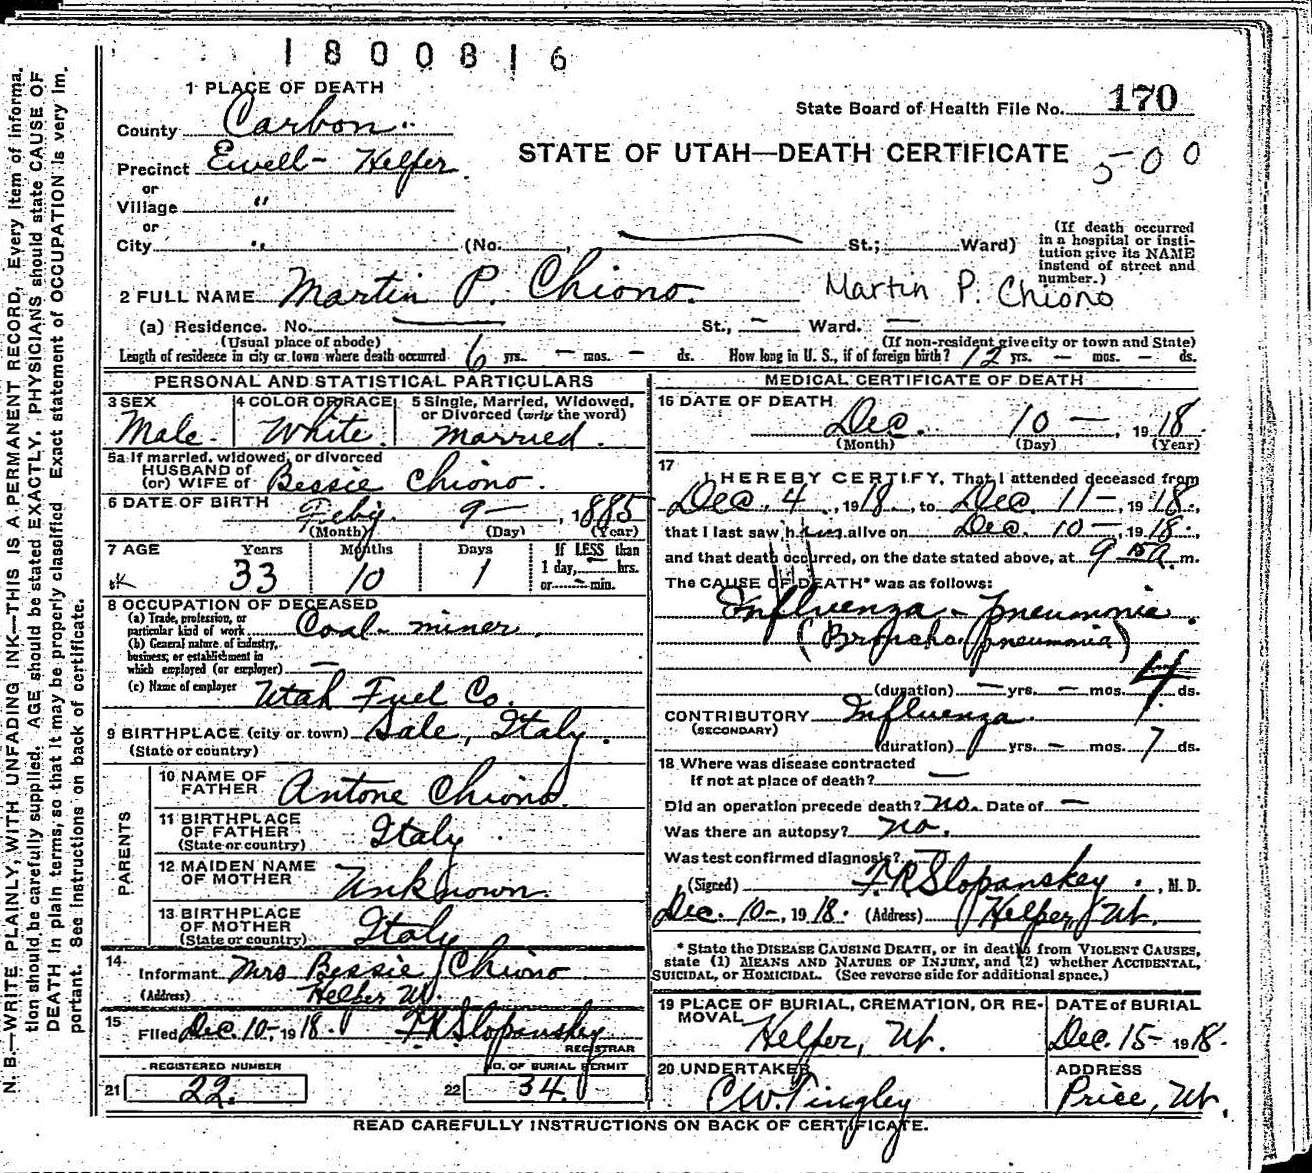 1800816
1 PLACE OF DEATH
State Board of Health File No. 170
County Carbon.
STATE OF UTAH—DEATH CERTIFICATE
500
Precinct Ewell- Helper.
or
Village "
or
City " (No. , St.; Ward)
(If death occurred in a hospital or insti-
tution give its NAME
instead of street and
number.)
2 FULL NAME Martin P. Chiono. Martin P. Chiono
(a) Residence. No. St., — Ward. —
(Usual place of abode) (If non-resident give city or town and State)
Length of residence in city or town where death occurred 6 yrs. — mos. — ds. How long in U. S., if of foreign birth? 12 yrs. — mos. — ds.
PERSONAL AND STATISTICAL PARTICULARS
3 SEX 4 COLOR OR RACE 5 Single, Married, Widowed,
or Divorced (write the word)
Male. White. Married.
5a If married, widowed, or divorced
HUSBAND of
(or) WIFE of Bessie Chiono.
6 DATE OF BIRTH
Feby. 9 — , 1885
(Month) (Day) (Year)
7 AGE Years Months Days If LESS than
33 10 1 1 day, hrs.
or — min.
8 OCCUPATION OF DECEASED
(a) Trade, profession, or
particular kind of work Coal-miner.
(b) General nature of industry,
business, or establishment in
which employed (or employer) —
(c) Name of employer Utah Fuel Co.
9 BIRTHPLACE (city or town) Sale, Italy.
(State or country)
PARENTS
10 NAME OF
FATHER Antone Chiono.
11 BIRTHPLACE
OF FATHER Italy
(State or country)
12 MAIDEN NAME
OF MOTHER Unknown.
13 BIRTHPLACE
OF MOTHER Italy
(State or country)
14
Informant Mrs Bessie Chiono
(Address) Helper Ut.
15
Filed Dec. 10-, 1918. F.R. Slopanskey
REGISTRAR
REGISTERED NUMBER NO. OF BURIAL PERMIT
21 22. 22 34.
MEDICAL CERTIFICATE OF DEATH
16 DATE OF DEATH
Dec. 10 — , 1918.
(Month) (Day) (Year)
17
I HEREBY CERTIFY, That I attended deceased from
Dec. 4, 1918., to Dec. 11-, 1918.,
that I last saw him alive on Dec. 10 —, 1918.,
and that death occurred, on the date stated above, at 9 15 a. m.
The CAUSE OF DEATH* was as follows:
Influenza - pneumonia.
(Broncho. pneumonia)
(duration) — yrs. — mos. 4 ds.
CONTRIBUTORY Influenza.
(SECONDARY)
(duration) yrs. — mos. 7 ds.
18 Where was disease contracted
If not at place of death? —
Did an operation precede death? no. Date of —
Was there an autopsy? no.
Was test confirmed diagnosis? —
(Signed) F.R. Slopanskey. , M. D.
Dec. 10-, 1918. (Address) Helper, Ut.
* State the DISEASE CAUSING DEATH, or in deaths from VIOLENT CAUSES,
state (1) MEANS AND NATURE OF INJURY, and (2) whether ACCIDENTAL,
SUICIDAL, or HOMICIDAL. (See reverse side for additional space.)
19 PLACE OF BURIAL, CREMATION, OR RE-
MOVAL
Helper, Ut.
DATE of BURIAL
Dec. 15- 1918.
20 UNDERTAKER
C.W. Tingley
ADDRESS
Price, Ut.
READ CAREFULLY INSTRUCTIONS ON BACK OF CERTIFICATE.
N. B.—WRITE PLAINLY, WITH UNFADING INK—THIS IS A PERMANENT RECORD. Every item of informa-
tion should be carefully supplied. AGE should be stated EXACTLY. PHYSICIANS should state CAUSE OF
DEATH in plain terms, so that it may be properly classified. Exact statement of OCCUPATION is very im-
portant. See instructions on back of certificate.